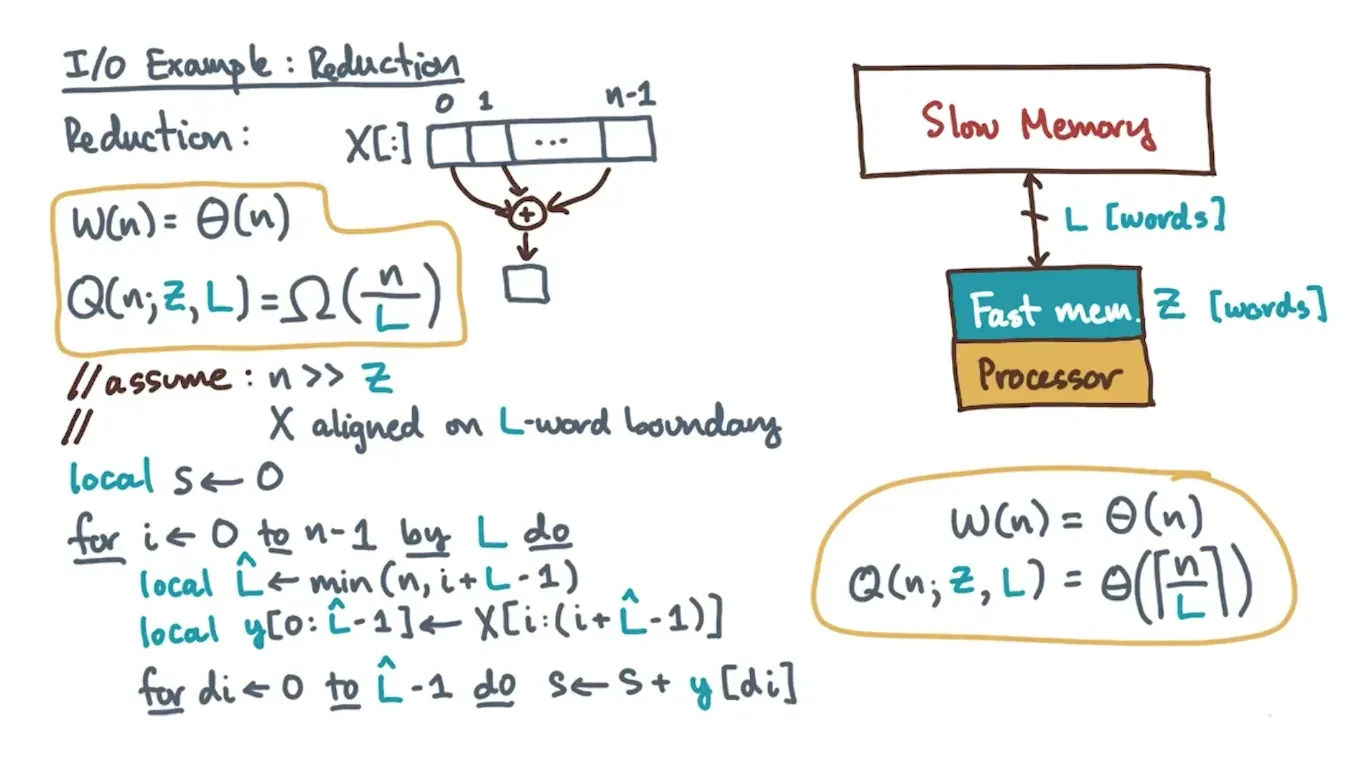 I/O Example: Reduction
Reduction: X[:] 0 1 ... n-1
+
W(n) = Θ(n)
Q(n; Z, L) = Ω(n/L)
//assume: n >> Z
// X aligned on L-word boundary
local s ← 0
for i ← 0 to n-1 by L do
local L̂ ← min(n, i+L-1)
local y[0:L̂-1] ← X[i:(i+L̂-1)]
for di ← 0 to L̂-1 do s ← s + y[di]
Slow Memory
L [words]
Fast mem. Z [words]
Processor
W(n) = Θ(n)
Q(n; Z, L) = Θ(⌈n/L⌉)